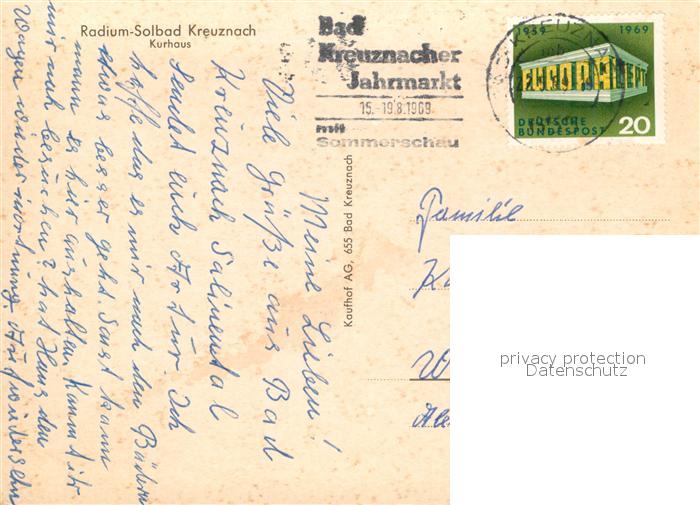 Radium-Solbad Kreuznach
Kurhaus
Bad
Kreuznacher
Jahrmarkt
15.-19.8.1969
mit
Sommerschau
KREUZN
1959 1969
EUROPA CEPT
DEUTSCHE
BUNDESPOST 20
Kaufhof AG, 655 Bad Kreuznach
Meine Lieben!
Viele Grüße aus Bad
Kreuznach Salinental
sendet euch Artur. Ich
hoffe das es mir nach den Bädern
etwas besser geht. Sonst kann
man es hier aushalten. Kannst ihr
mir nach besuchen? hat Hans den
Wagen wieder in Ordnung Aufwiedersehn
Familie
K
W
privacy protection
Datenschutz